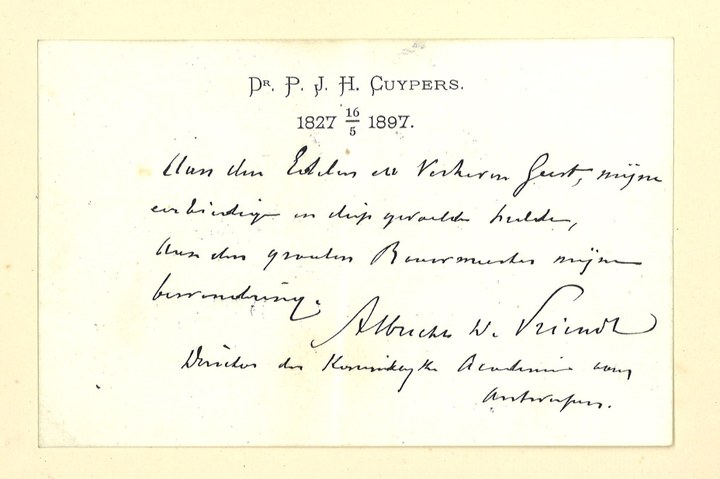 Dr. P. J. H. Cuypers.
1827 16/5 1897.
Aan den Edelen en Verheven Geest, mijne
eerbiedige en diep gevoelde hulde,
Aan den grooten Bouwmeester mijne
bewondering.
Albrecht De Vriendt
Director der Koninklijke Academie van
Antwerpen.